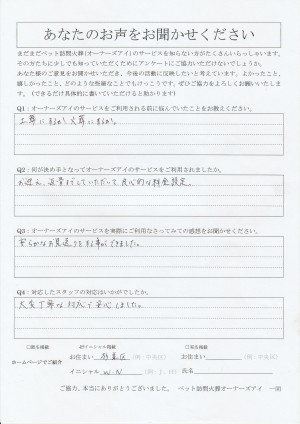 あなたのお声をお聞かせください
まだまだペット訪問火葬(オーナーズアイ)のサービスを知らない方がたくさんいらっしゃいます。
その方たちに少しでも知っていただくためにアンケートにご協力いただけないでしょうか。
あなた様のご意見をお聞かせいただき、今後の活動に反映したいと考えています。よかったこと、
嬉しかったこと、どのような些細なことでもけっこうです。ぜひご協力をよろしくお願いいたします。
(できるだけ具体的に書いていただけると助かります)
Q1：オーナーズアイのサービスをご利用される前に悩んでいたことをお教えください。
土葬にするか、火葬にするか。
Q2：何が決め手となってオーナーズアイのサービスをご利用されましたか。
お迎え、返骨までしていただいて良心的な料金設定。
Q3：オーナーズアイのサービスを実際にご利用なさってみての感想をお聞かせください。
安らかなお見送りを出来ました。
Q4：対応したスタッフの対応はいかがでしたか。
大変丁寧な対応で安心しました。
ホームページでご紹介
お住まい (例：中央区)
お住まい (例：中央区)
イニシャル W.N
氏名
ご協力、本当にありがとうございました。 ペット訪問火葬オーナーズアイ 一同